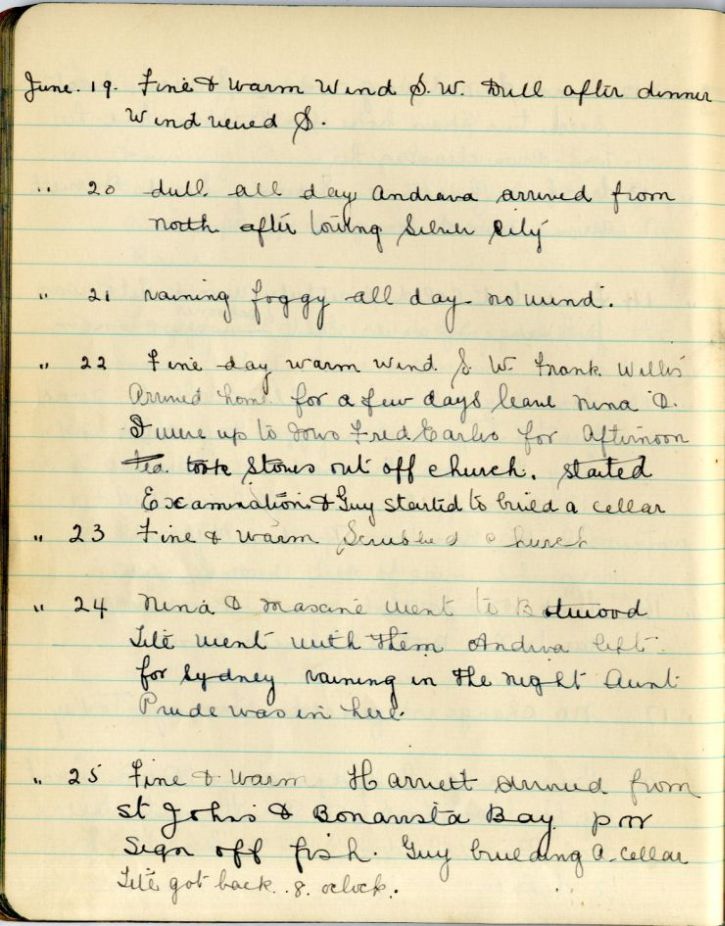 June. 19. Fine & warm Wind S. W. Dull after dinner
Wind veued S.
" 20 dull all day Andrava arrived from
north after towing Silver City
" 21 raining foggy all day no wind.
" 22 Fine day warm wind. S. W. Frank Willis
Arrived home for a few days leave Nina &
I were up to Fred Earles for Afternoon
Tea. took Stoves out off church. started
Examination & Guy started to build a cellar
" 23 Fine & warm Scrubbed church
" 24 Nina & Maxine went to Botwood
went with them Andrva left
for Sydney raining in the night Aunt
Prude was in here.
" 25 Fine & warm arrived from
St Johns & Bonavista Bay
Sign off fish. Guy building a cellar
got back. 8. oclock.